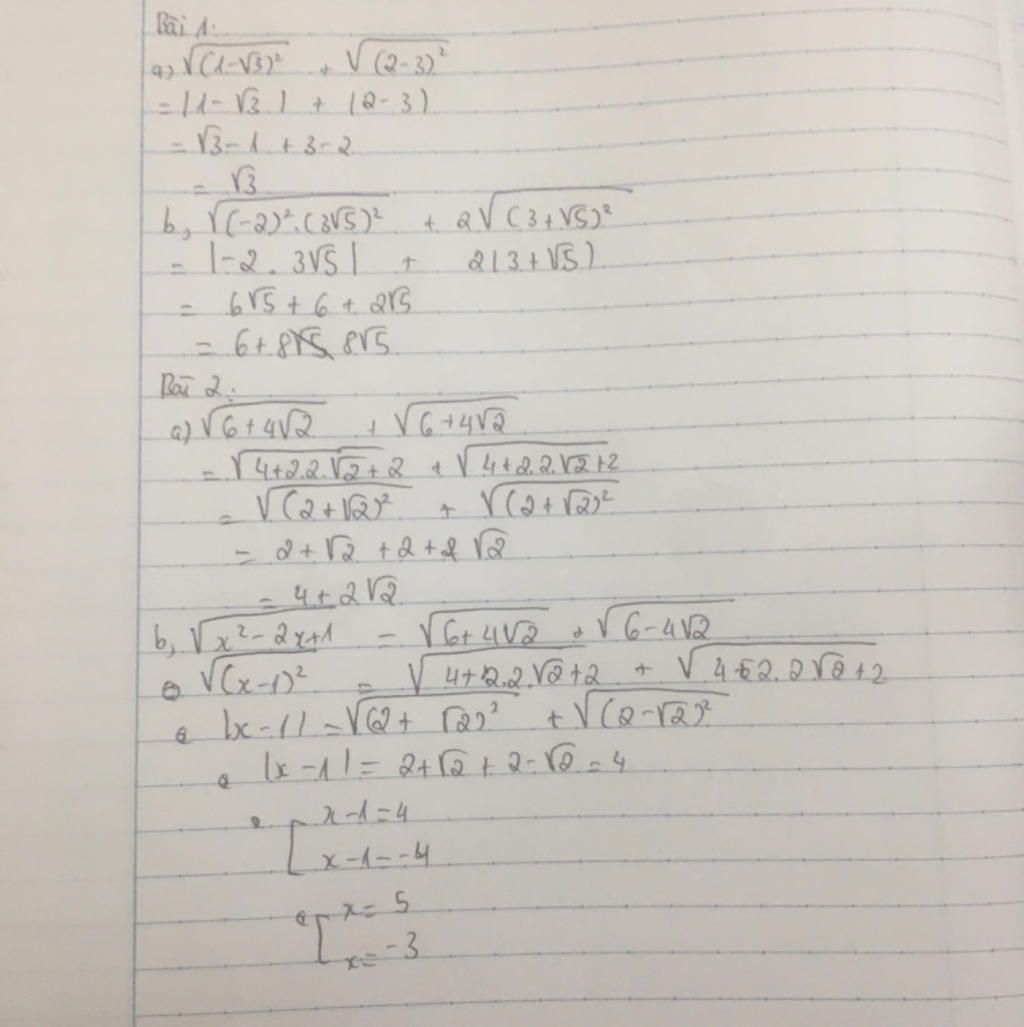 Bài 1:
a) √(1-√3)² + √(2-3)²
= |1-√3| + |2-3|
= √3-1 + 3-2
= √3
b, √(-2)².(3√5)² + 2√(3+√5)²
= |-2. 3√5| + 2(3+√5)
= 6√5 + 6 + 2√5
= 6+ 8√5
Bài 2:
a) √6+4√2 + √6+4√2
= √4+2.2.√2+2 + √4+2.2.√2+2
= √(2+√2)² + √(2+√2)²
= 2+√2 +2+ √2
= 4+2√2
b, √x²-2x+1 = √6+4√2 + √6-4√2
⇔ √(x-1)² = √4+2.2.√2+2 + √4-2.2√2+2
⇔ |x-1| = √(2+ √2)² + √(2-√2)²
⇔ |x-1| = 2+√2 + 2-√2 = 4
⇔ [ x-1=4
x-1=-4
⇔ [ x= 5
x= -3